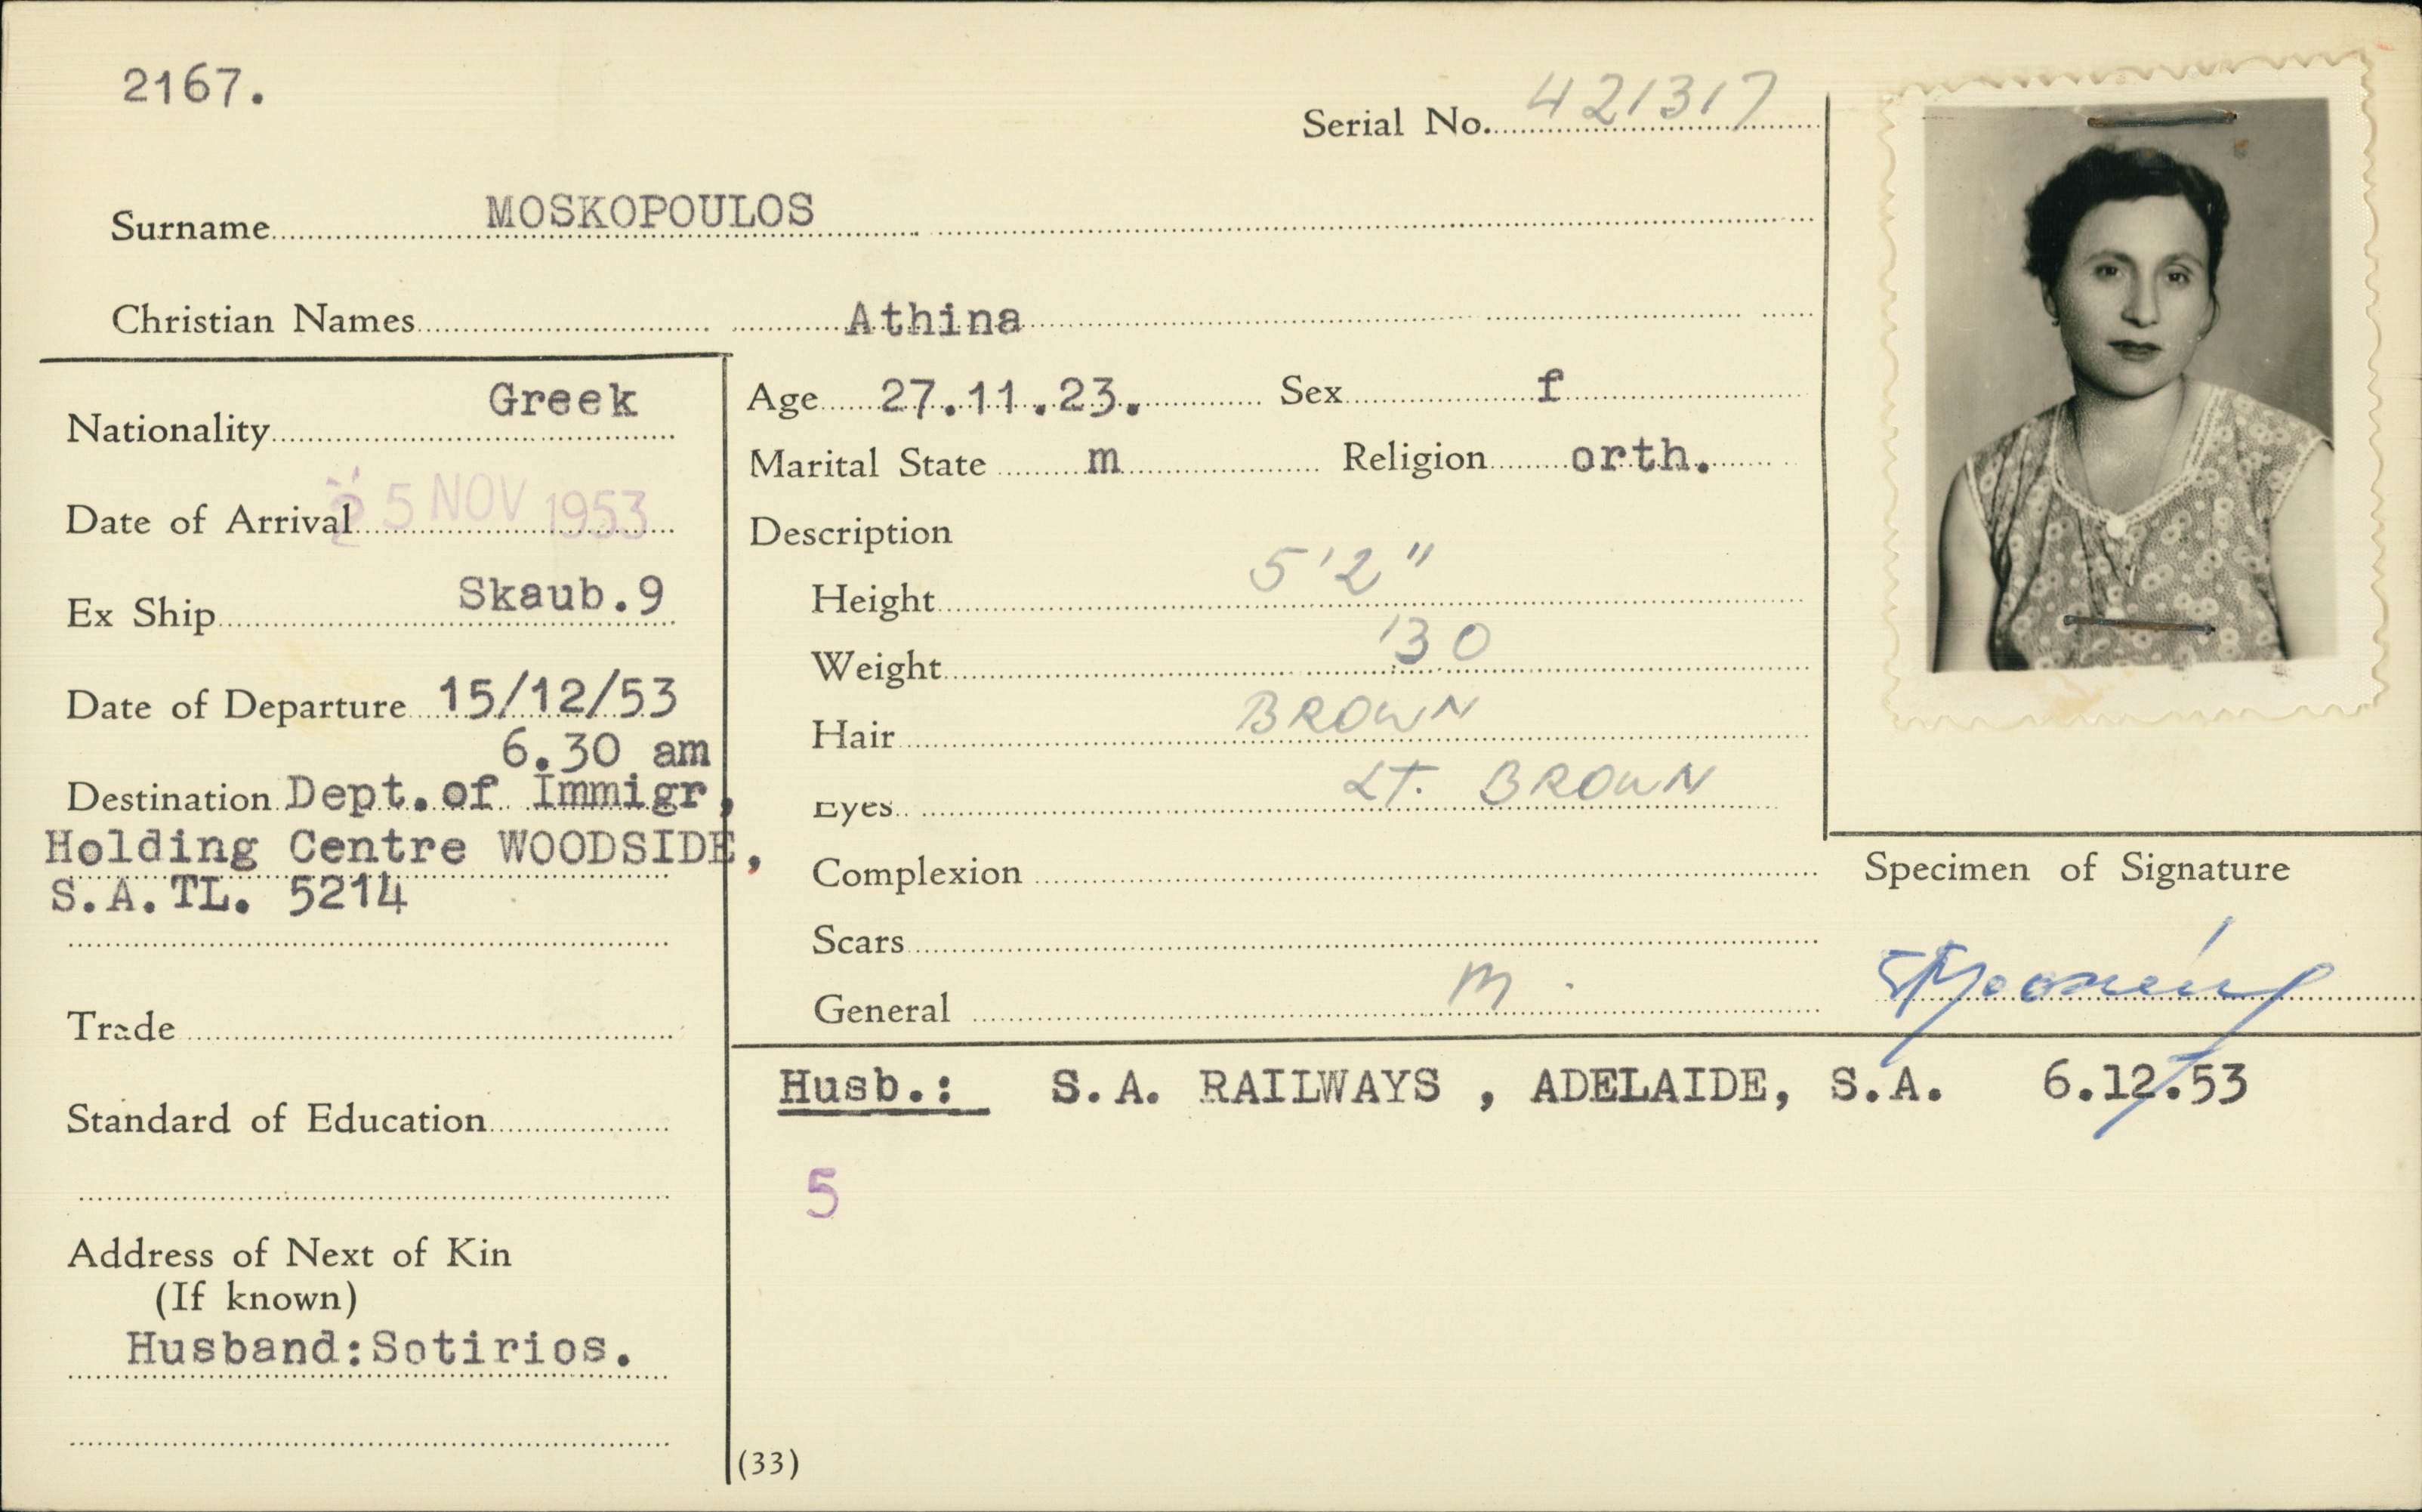 2167.
Serial No. 421317
Surname MOSKOPOULOS
Christian Names Athina
Nationality Greek
Date of Arrival 25 NOV 1953
Ex Ship Skaub.9
Date of Departure 15/12/53
6.30 am
Destination Dept.of Immigr,
Holding Centre WOODSIDE,
S.A.TL. 5214
Trade
Standard of Education
Address of Next of Kin
(If known)
Husband:Sotirios.
Age 27.11.23. Sex f
Marital State m Religion orth.
Description
Height 5'2"
Weight 130
Hair BROWN
Eyes LT. BROWN
Complexion
Scars
General M.
Specimen of Signature
Husb.: S.A. RAILWAYS , ADELAIDE, S.A. 6.12.53
5
(33)